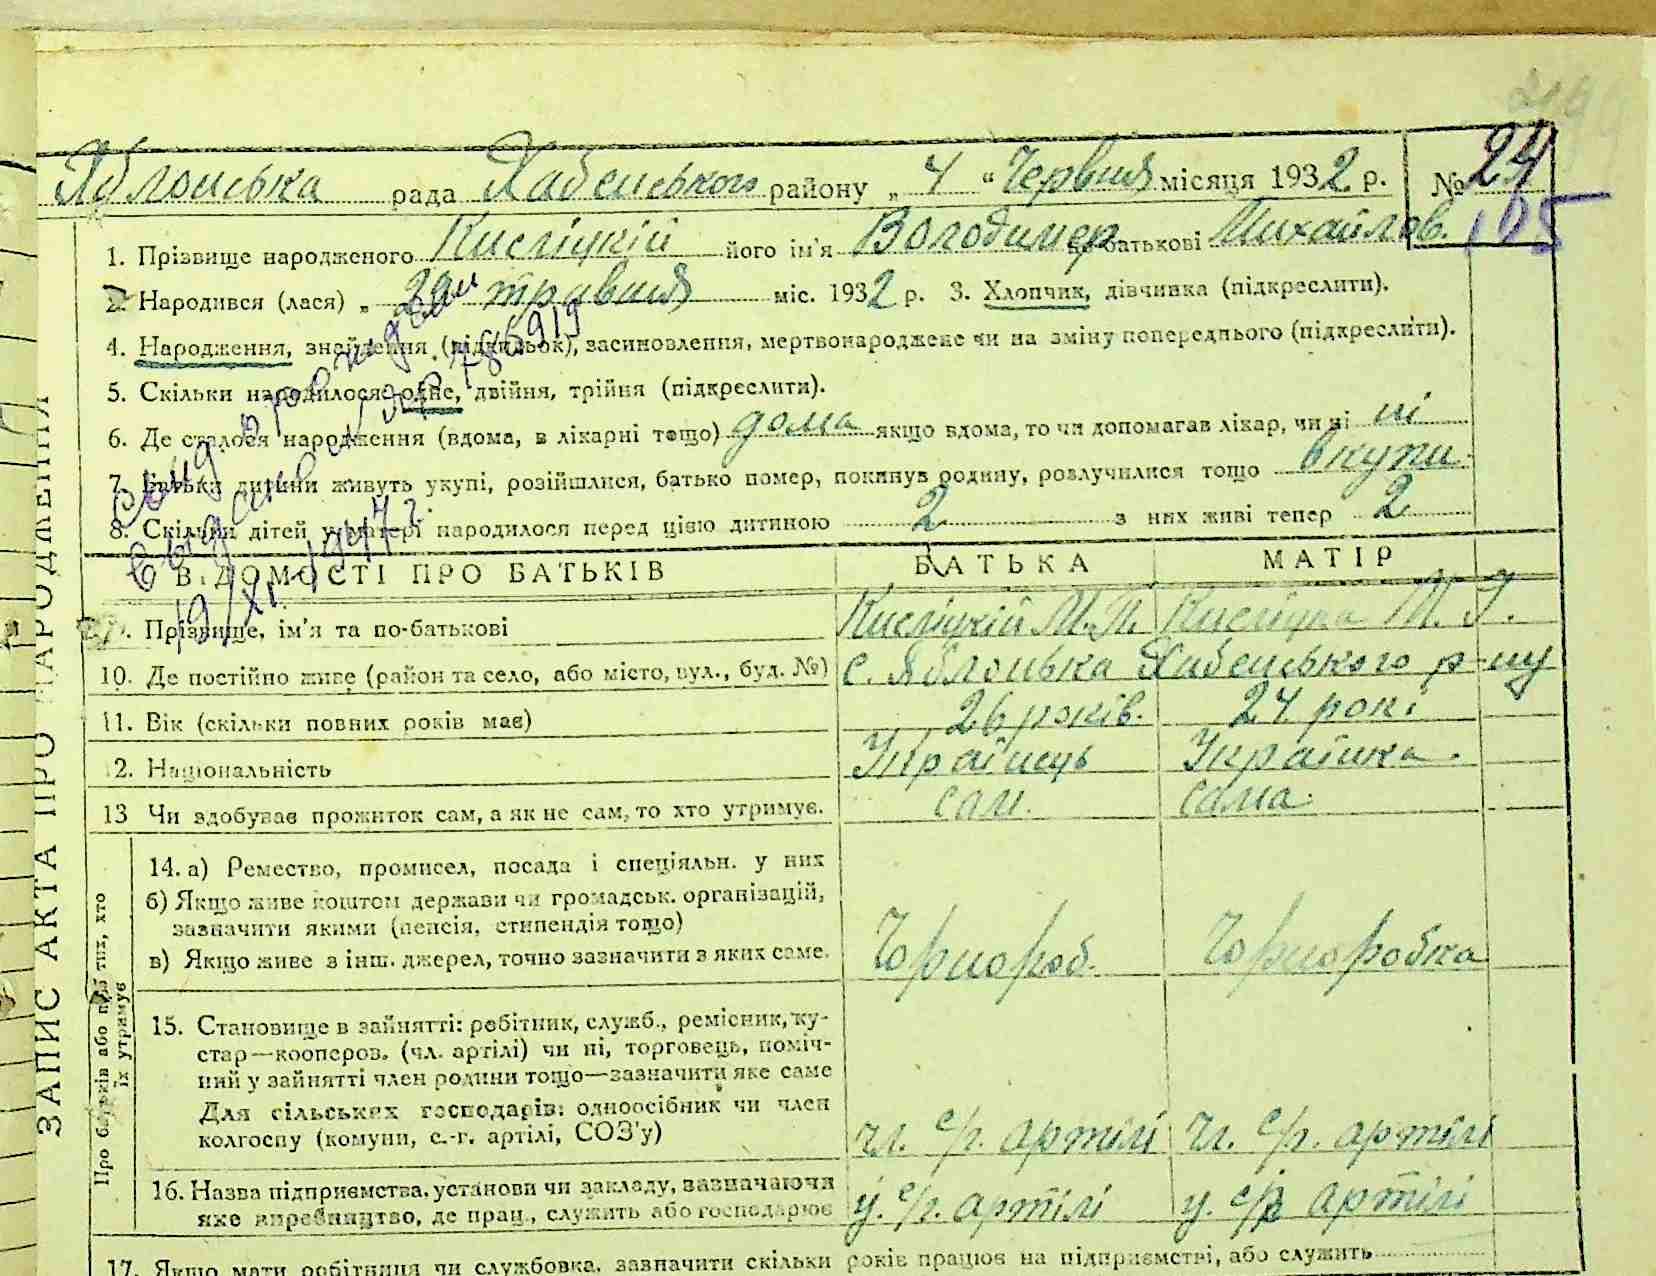 Яблонська рада Хабенського району „ 4 " Червня місяця 1932 р. № 24
105
1. Прізвище народженого Кисліцкій його ім'я Володимер по батькові Михайлов.
2. Народився (лася) „ 29 травня міс. 1932 р. 3. Хлопчик, дівчинка (підкреслити).
4. Народження, знайдення (підкидьок), засиновлення, мертвонароджене чи на зміну попереднього (підкреслити).
5. Скільки народилося: одне, двійня, трійня (підкреслити).
6. Де сталося народження (вдома, в лікарні тощо) дома якщо вдома, то чи допомагав лікар, чи ні ні
7. Батьки дитини живуть укупі, розійшлися, батько помер, покинув родину, розлучилися тощо вкупи
8. Скільки дітей у матері народилося перед цією дитиною 2 з них живі тепер 2
ВІДОМОСТІ ПРО БАТЬКІВ БАТЬКА МАТІР
9. Прізвище, ім'я та по-батькові Кисліцкій М. П. Кисліцка М. І.
10. Де постійно живе (район та село, або місто, вул., буд. №) с. Яблонька Хабенського р-ну
11. Вік (скільки повних років має) 26 років. 24 рокі
12. Національність Українець Українка.
13 Чи здобуває прожиток сам, а як не сам, то хто утримує. сам. сама.
14. а) Ремество, промисел, посада і спеціяльн. у них
б) Якщо живе коштом держави чи громадськ. організацій,
зазначити якими (пенсія, стипендія тощо)
в) Якщо живе з інш. джерел, точно зазначити з яких саме. Чорнороб. Чорноробка
15. Становище в зайнятті: робітник, служб., ремісник, ку-
стар—кооперов. (чл. артілі) чи ні, торговець, поміч-
ний у зайнятті член родини тощо—зазначити яке саме
Для сільських господарів: одноосібник чи член
колгоспу (комуни, с.-г. артілі, СОЗ'у) чл. с/г. артілі чл. с/г. артілі
16. Назва підприємства, установи чи закладу, зазначаючи
яке виробництво, де прац., служить або господарює у. с/г. артілі у. с/г артілі
17. Якщо мати робітниця чи службовка, зазначити скільки років працює на підприємстві, або служить
ЗАПИС АКТА ПРО НАРОДЖЕННЯ
Про батьків або про тих, хто
їх утримує
19/XI 1947 г.